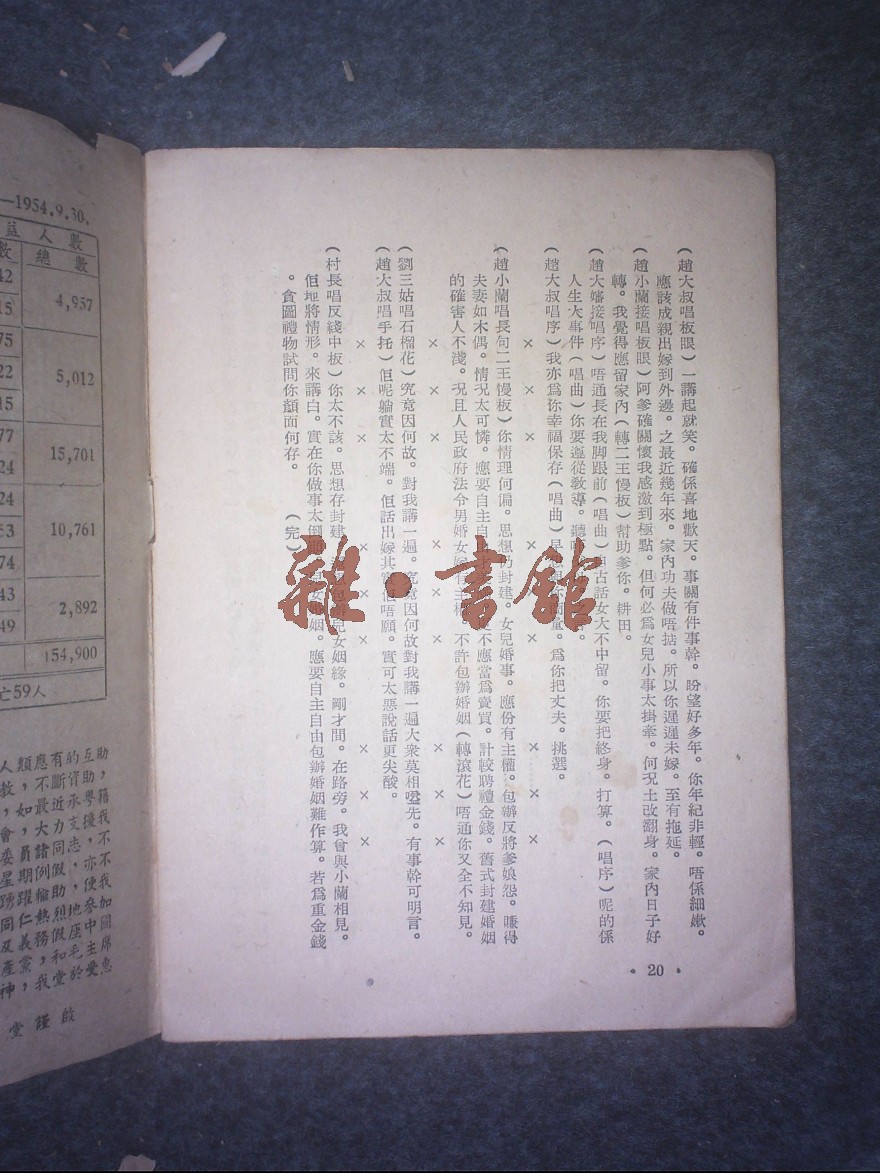 (趙大叔唱板眼)一講起就笑。確係喜地歡天。事關有件事幹。盼望好多年。你年紀非輕。唔係細嫩。
應該成親出嫁到外邊。之最近幾年來。家內功夫做唔掂。所以你遲遲未嫁。至有拖延。
(趙小蘭接唱板眼)阿爹確關懷我感激到極點。但何必為女兒小事太掛牽。何况土改翻身。家內日子好
轉。我覺得應留家內(轉二王慢板)幫助爹你。耕田。
(趙大嬸接唱序)唔通長在我脚跟前(唱曲)自古話女大不中留。你要把終身。打算。(唱序)呢的係
人生大事件(唱曲)你要遵從教導。聽
(趙大叔唱序)我亦為你幸福保存(唱曲)早 量。為你把丈夫。挑選。
× × × × × × × × ×
(趙小蘭唱長句二王慢板)你情理何偏。思想仍封建。女兒婚事。應份有主權。包辦反將爹娘怨。賺得
夫妻如木偶。情況太可憐。應要自主自由才 不應當為賣買。計較聘禮金錢。舊式封建婚姻
的確害人不淺。况且人民政府法令男婚女 有主權。不許包辦婚姻(轉滾花)唔通你又全不知見。
× × × × × × × × ×
(劉三姑唱石榴花)究竟因何故。對我講一遍。究竟因何故對我講一遍大衆莫相嗌先。有事幹可明言。
(趙大叔唱手托)佢呢騧實太不端。佢話出嫁其實佢唔願。實可太惡說話更尖酸。
× × × × × × × × ×
(村長唱反綫中板)你太不該。思想存封建。 包辦兒女姻緣。剛才間。在路旁。我曾與小蘭相見。
佢地將情形。來講白。實在你做事太倒 女婚姻。應要自主自由包辦婚姻難作算。若為重金錢
。貪圖禮物試問你顏面何存。 (完)
• 20 •
雜·書館
—1954.9.30.
益人數
數 總數
42
15 4,957
75
22 5,012
15
77 15,701
24
24 10,761
74
43 2,892
49
154,900
亡59人
人類應有的互助
教,不斷資助,
,如最近承粤籍
會,大力支援我
委員諸同志,不
星期例假,亦不
踴躍輪助,使我
同仁熱烈地參加
及義務假座中國
產黨,和毛主席
神,我堂於受惠
堂謹啟